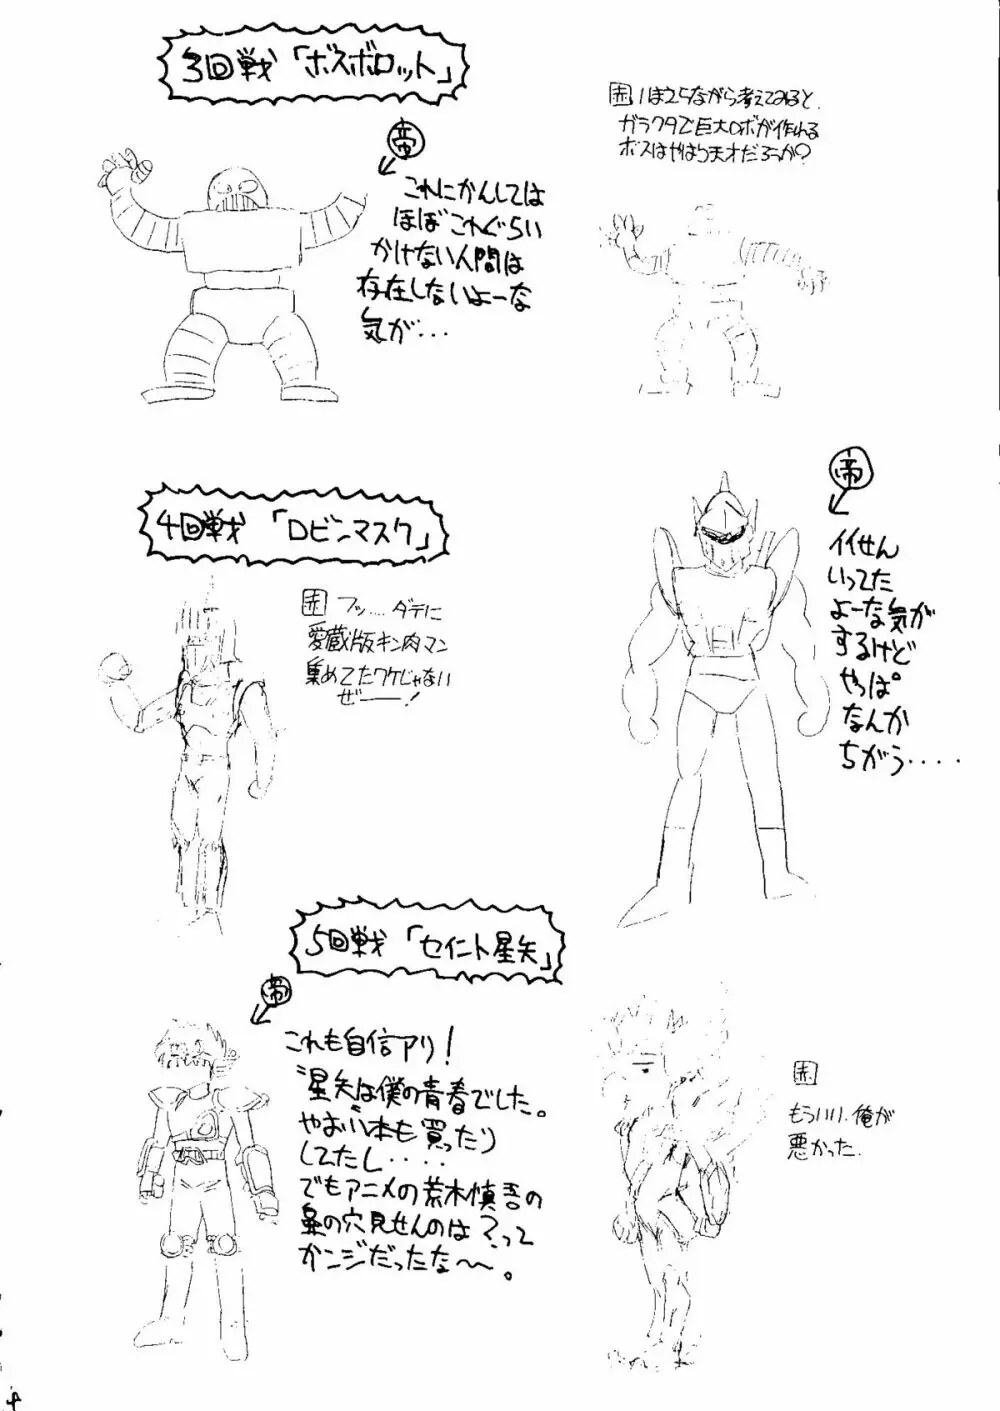 3回戦「ボスボロット」
帝
これにかんしては
ほぼこれぐらい
かけない人間は
存在しないよーな
気が・・・
赤 しほうしながら考えてみると、
ガラクタで巨大ロボが作れる
ボスはやはり天才だろうか?
4回戦「ロビンマスク」
赤 フッ……ダテに
愛蔵版キン肉マン
集めてたワケじゃない
ぜ――!
帝
イイせん
いってた
よーな気が
するけど
やっぱ
なんか
ちがう・・・・
5回戦「セイント星矢」
帝
これも自信アリ!
"星矢"は僕の青春でした。
やおい本も買ったり
してたし・・・・
でもアニメの荒木慎吾の
鼻の穴見せんのは?って
カンジだったな〜。
赤
もういい、俺が
悪かった.